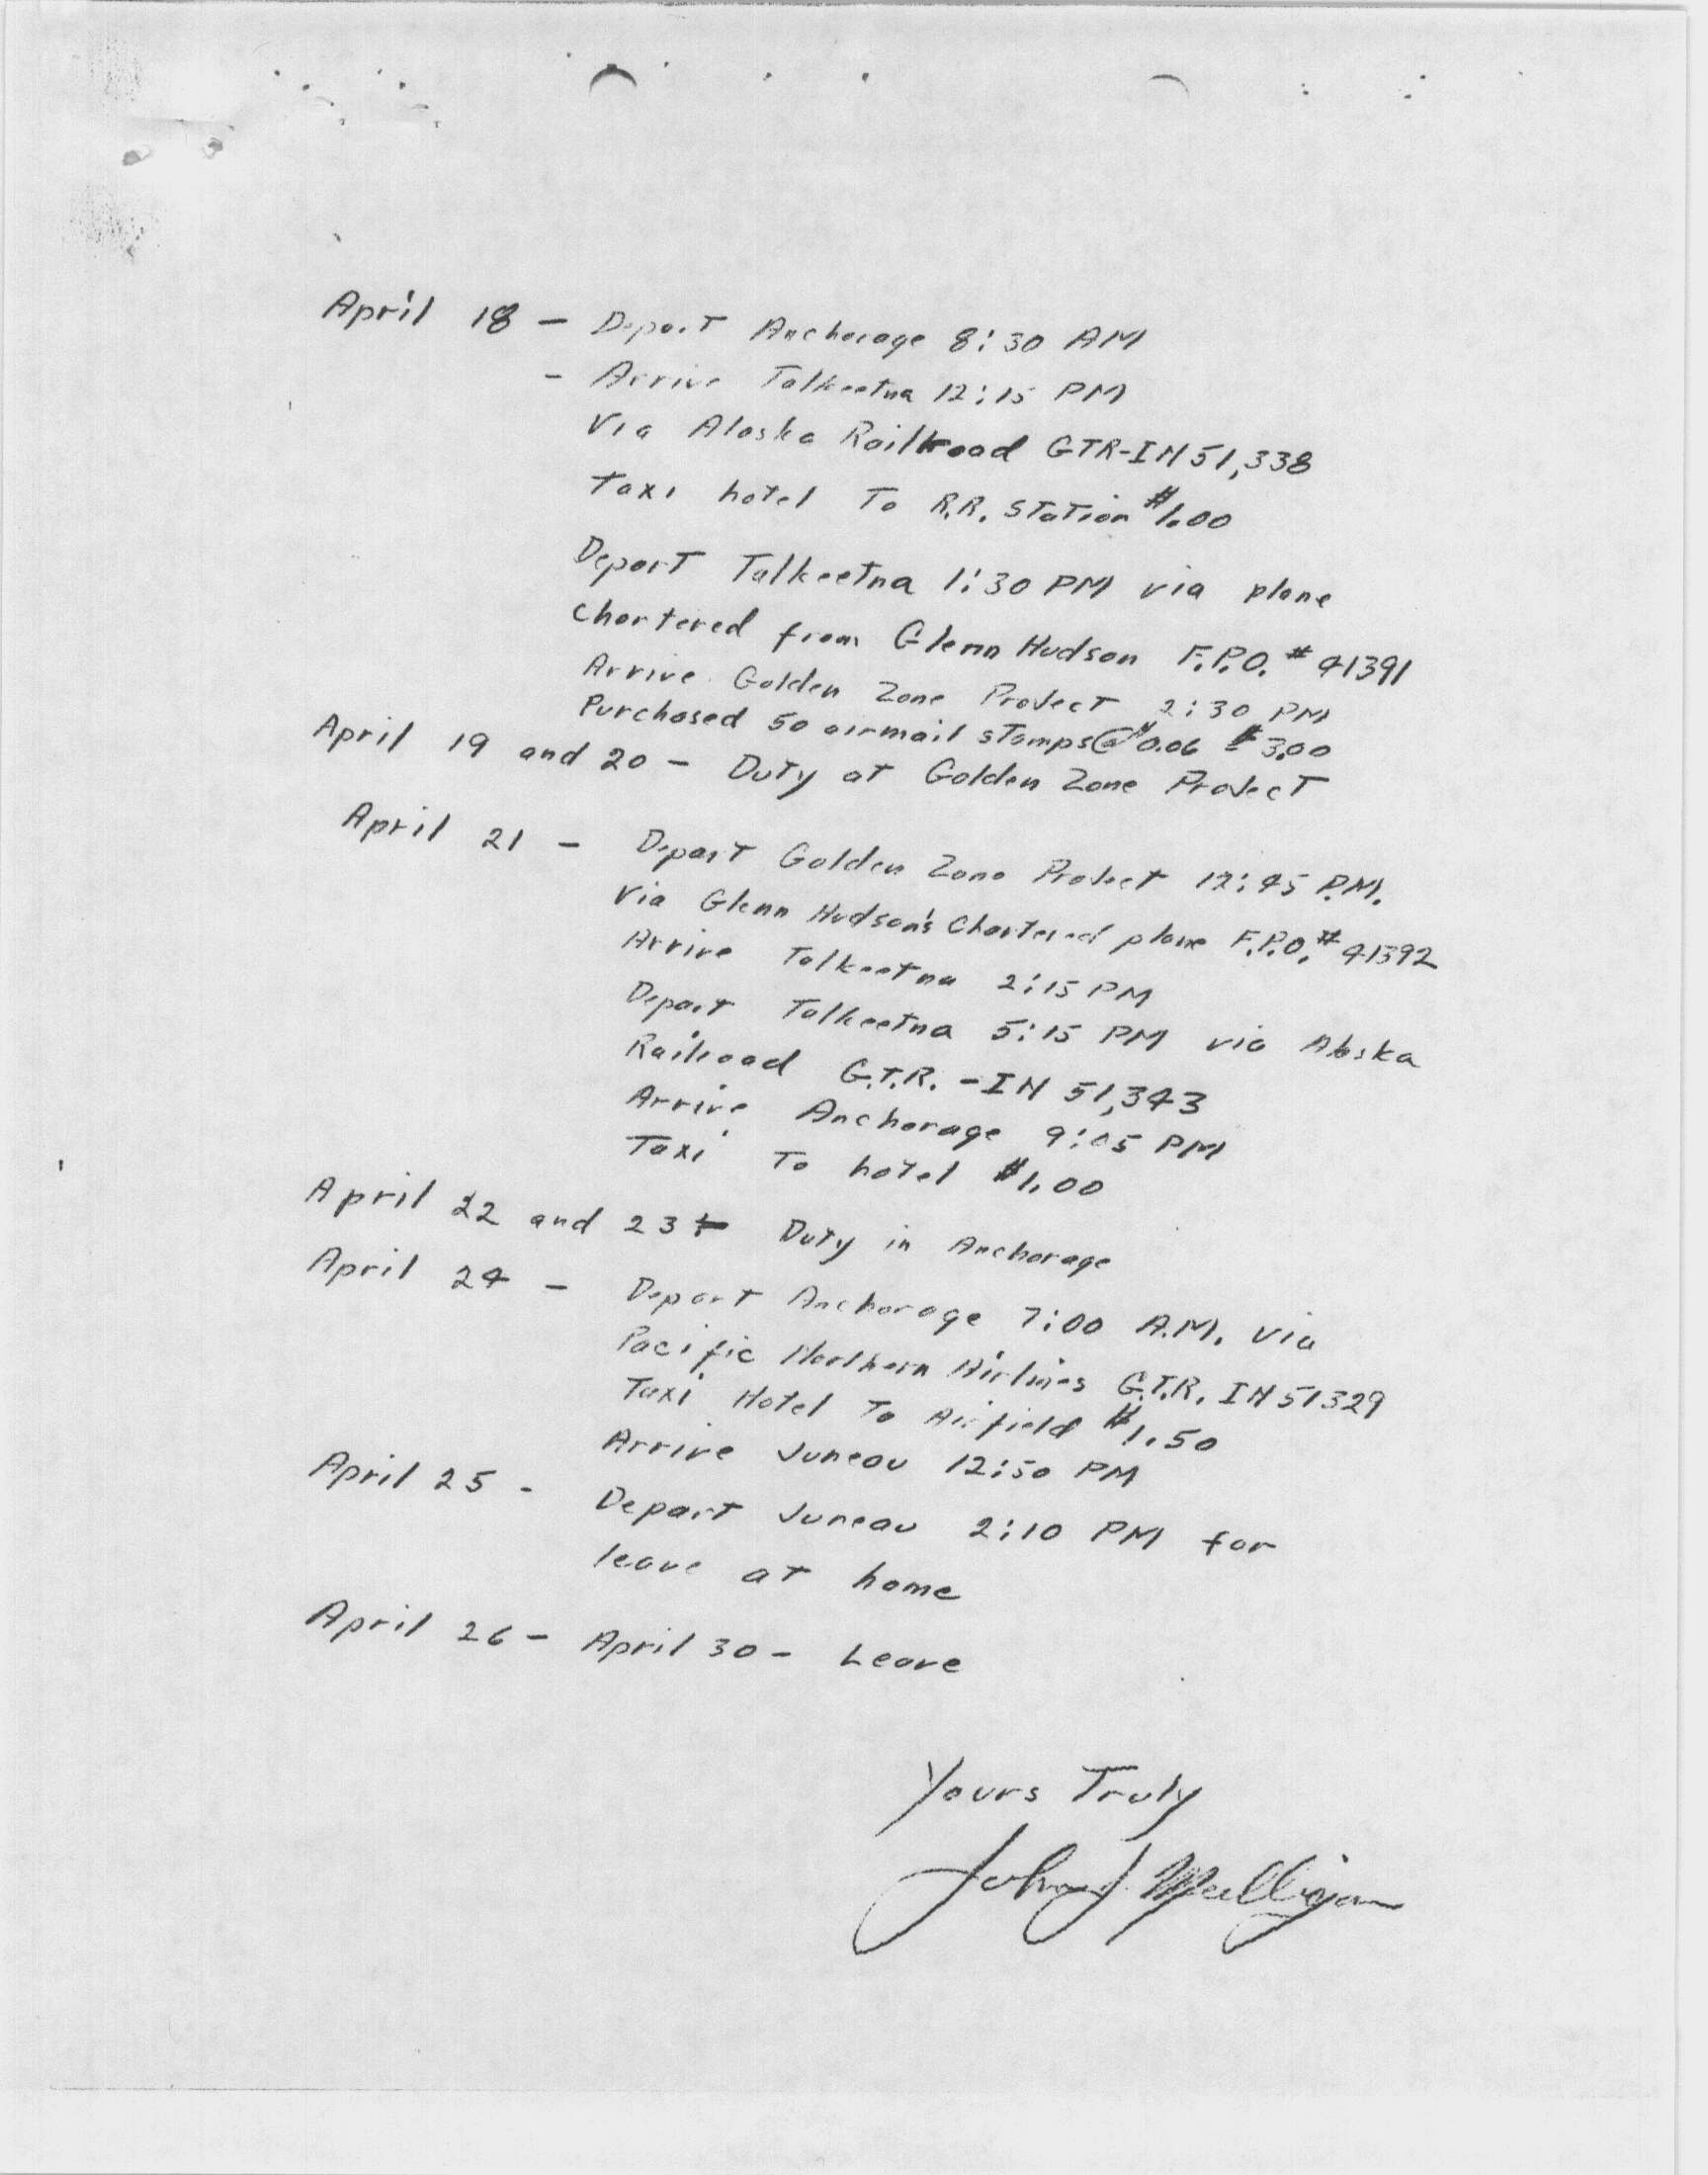 April 18 - Depart Anchorage 8:30 AM
- Arrive Talkeetna 12:15 PM
Via Alaska Railroad GTR-IN51,338
taxi hotel To R.R. Station $1.00
Depart Talkeetna 1:30 PM via plane
chartered from Glenn Hudson F.P.O. # 41391
Arrive Golden Zone Project 2:30 PM
Purchased 50 airmail stamps @ $0.06 $3.00
April 19 and 20 - Duty at Golden Zone Project
April 21 - Depart Golden Zone Project 12:45 P.M.
Via Glenn Hudson's Chartered plane F.P.O. # 41392
Arrive Talkeetna 2:15 PM
Depart Talkeetna 5:15 PM via Alaska
Railroad G.T.R. - IN 51,343
Arrive Anchorage 9:05 PM
Taxi To hotel $1.00
April 22 and 23 - Duty in Anchorage
April 24 - Depart Anchorage 7:00 A.M. Via
Pacific Northern Airlines G.T.R. IN51329
Taxi Hotel To Airfield $1.50
Arrive Juneau 12:50 PM
April 25 - Depart Juneau 2:10 PM for
leave at home
April 26 - April 30 - Leave
Yours Truly
John J. Mulligan